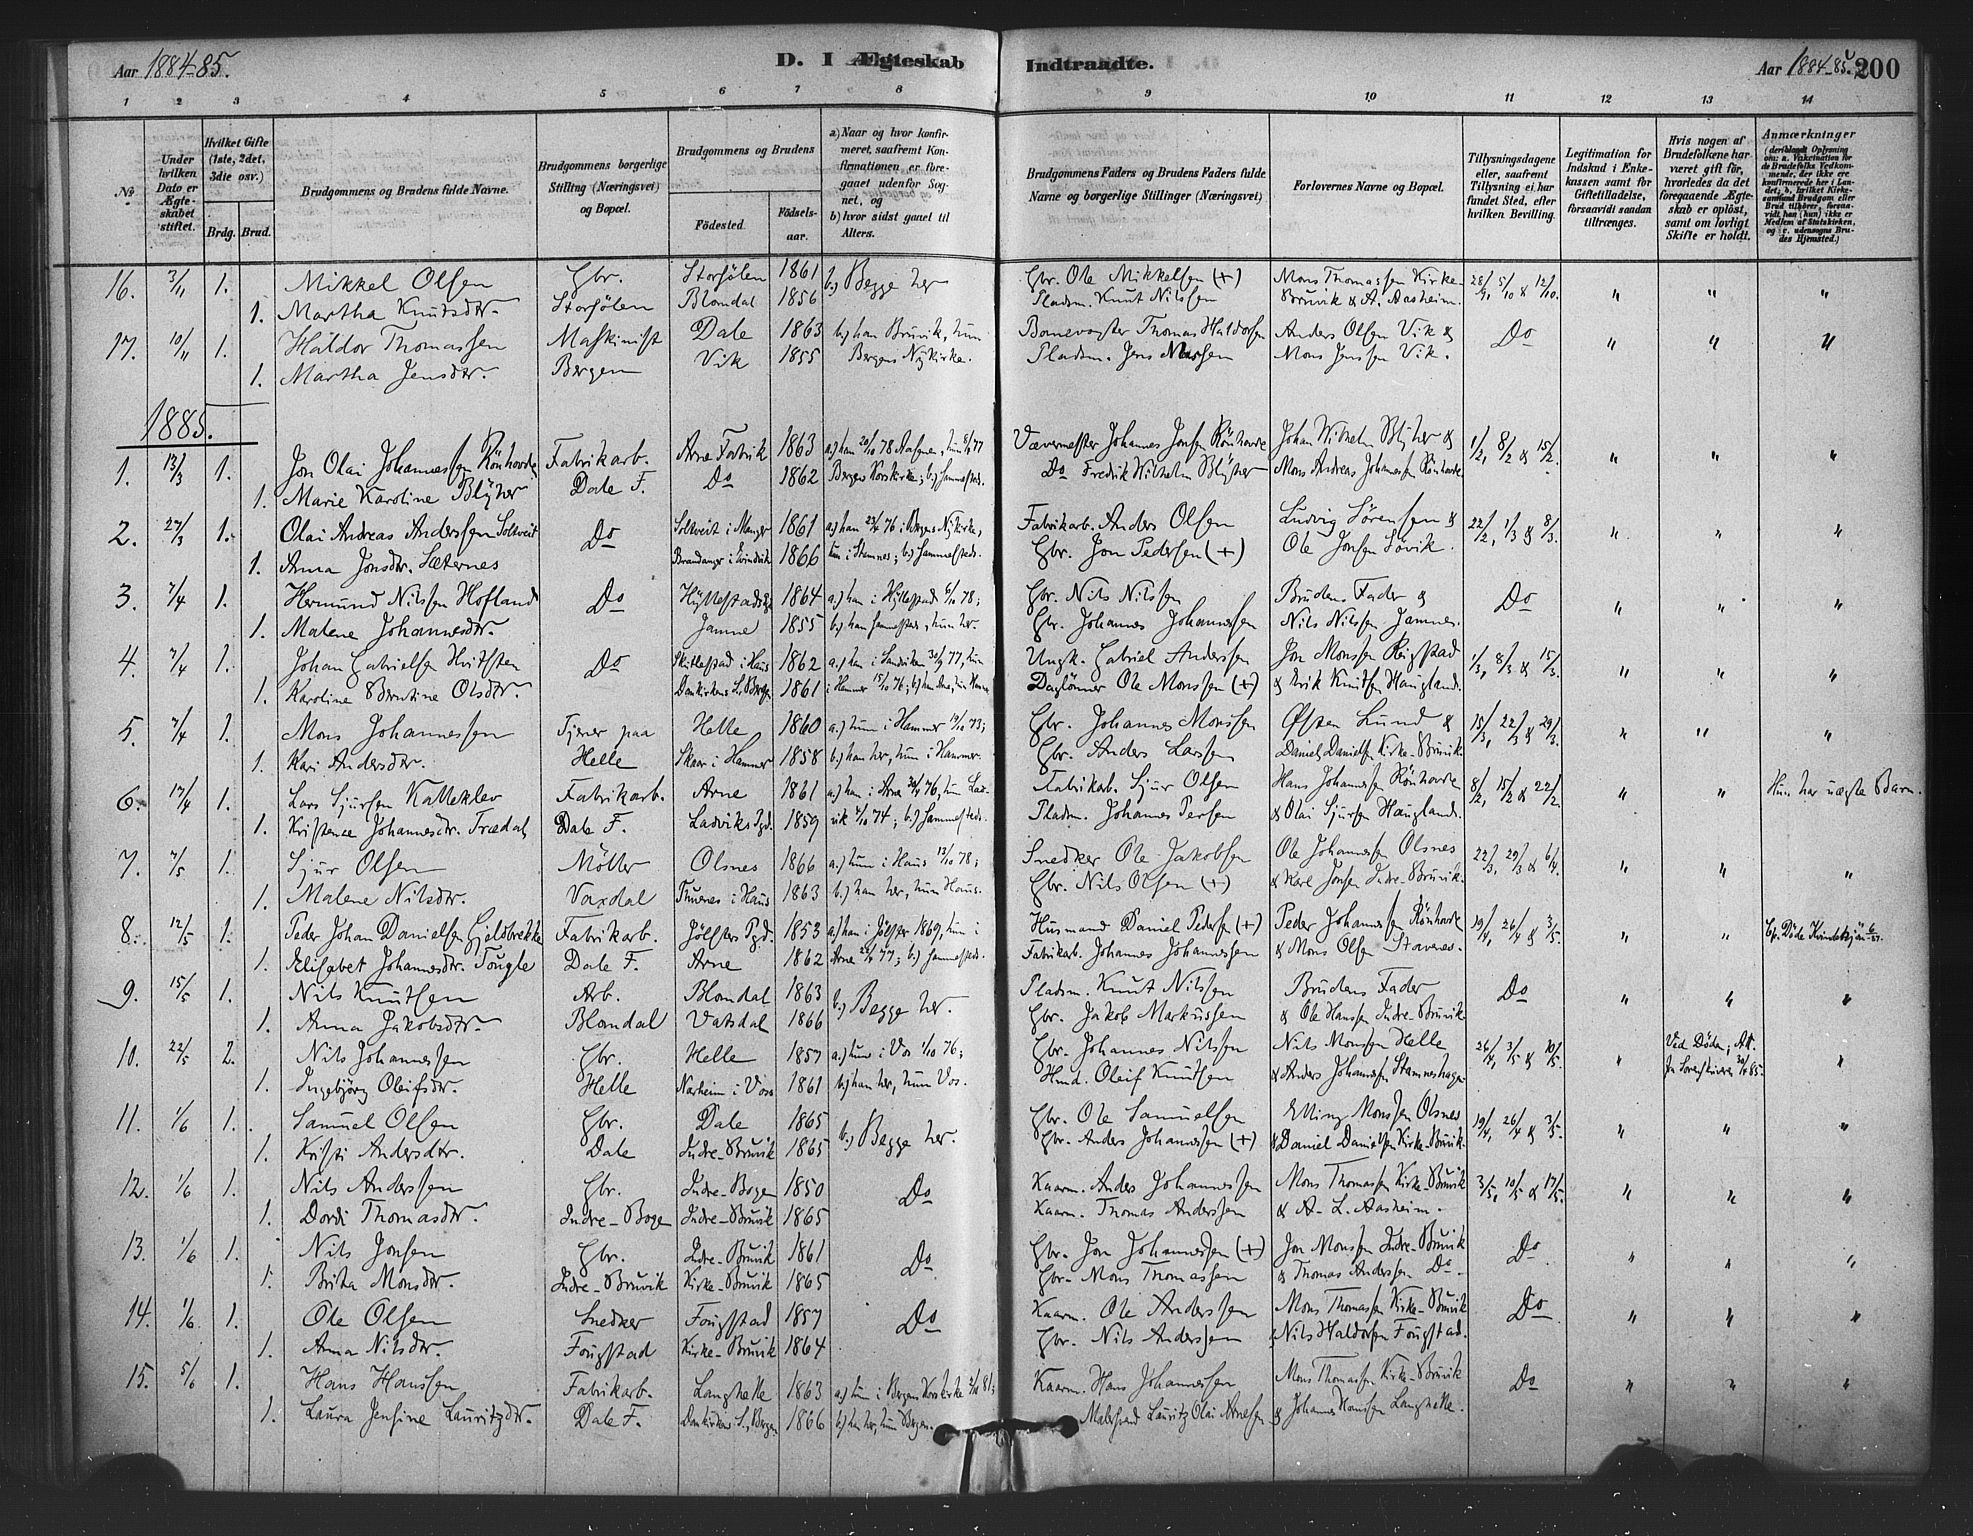 Aar 1884-85.
D. I Ægteskab Indtraadte.
Aar 1884-85. 200
1 2 3 4 5 6 7 8 9 10 11 12 13 14
No. Under hvilken Dato er Ægteskabet stiftet. Hvilket Gifte (1ste, 2det, 3die osv.) Brdg. Brud. Brudgommens og Brudens fulde Navne. Brudgommens borgerlige Stilling (Næringsvei) og Bopæl. Brudgommens og Brudens Fødested. Fødselsaar. a) Naar og hvor konfirmeret, saafremt Konfirmationen er foregaaet udenfor Sognet, og b) hvor sidst gaaet til Alters.
Brudgommens Faders og Brudens Faders fulde Navne og borgerlige Stillinger (Næringsvei) Forlovernes Navne og Bopæl. Tillysningsdagene eller, saafremt Tillysning ei har fundet Sted, efter hvilken Bevilling. Legitimation for Indskud i Enkekassen samt for Giftetilladelse, forsaavidt saadan tiltrænges. Hvis nogen af Brudefolkene har været gift før, hvorledes da det foregaaende Ægteskab er opløst, samt om lovligt Skifte er holdt. Anmærkninger (deriblandt Oplysning om: a. Vakcination for de Brudefolks Vedkommende, der ikke ere konfirmerede her i Landet; b. hvilket Kirkesamfund Brudgom eller Brud tilhører, forsaavidt han (hun) ikke er Medlem af Statskirken, og c. udensogns Brudes Hjemsted.)
16. 3/11 1. Mikkel Olsen Gbr. Storsölen 1861 b.) Begge her Gbr. Ole Mikkelsen (+) Mons Thomassen Kirke- 28/9, 5/10 & 12/10. " " "
1. Martha Knutsdtr. Storsölen Blomdal 1856 Pladsm. Knut Nilssen Bruvik & A. Aasheim.
17. 10/11 1. Haldor Thomassen Maskinist Dale 1863 b.) han Bruvik, hun Banevogter Thomas Haldorsen Anders Olsen Vik & Do " " "
1. Martha Jensdtr. Bergen Vik 1855 Bergens Nykirke. Pladsm. Jens Monsen Mons Jenssen Vik.
1885.
1. 13/3 1. Jon Olai Johannessen Rönhovde Fabrikarb. Arne Fabrik 1863 a.) han 20/10 78 hun 8/4 77 Vævermester Johannes Jonsen Rönhovde Johan Wilhelm Blÿher & 1/2, 8/2 & 15/2. " " "
1. Marie Karoline Blÿher Dale F. Do 1862 Bergens Korskirke; b.) sammesteds. Do Fredrik Wilhelm Blÿher Mons Andreas Johannessen Rönhovde
2. 27/3 1. Olai Andreas Anderssen Soltveit Do Soltveit i Manger 1861 a.) han 23/4 76 i Bergens Nykirke, Fabrikarb. Anders Olsen Ludvig Sörensen & 22/2, 1/3 & 8/3. " " "
1. Anna Jonsdtr. Sæternes Brandanger i Evindvik 1866 hun i Stamnes; b.) sammesteds. Gbr. Jon Pedersen (+) Ole Jonsen Lövik.
3. 7/4 1. Hermund Nilsen Hofland Do Hyllestads 1864 a.) han i Hyllestad 6/10 78; Gbr. Nils Nilsen Brudens Fader & Do " " "
1. Malene Johannesdtr. Jamne 1855 b.) han sammesteds, hun her. Gbr. Johannes Johannessen Nils Nilsen Jamnes.
4. 7/4 1. Johan Gabrielsen Hvitsten Do i Haus 1862 a.) han i Sandviken 30/9 77, hun Ungk. Gabriel Anderssen Jon Monsen Reigstad 1/3, 8/3 & 15/3. " " "
1. Karoline Berntine Olsdtr. Domkirkens S. Bergen 1861 i Hammer 15/10 76; b.) han Arne, hun Hammer Daglönner Ole Monssen (+) & Erik Knutsen Haugland.
5. 7/4 1. Mons Johannessen Tjener paa Helle 1860 a.) hun i Hammer 19/10 73; Gbr. Johannes Monssen Östen Lund & 15/3, 22/3 & 29/3. " " "
1. Kari Andersdtr. Helle Skaar i Hammer 1858 b.) han her, hun i Hammer. Gbr. Anders Larssen Daniel Danielsen Kirke-Bruvik
6. 17/4 1. Lars Sjursen Katteklev Fabrikarb. Arne 1861 a.) han i Arne 30/4 76, hun Lad- Fabrikarb. Sjur Olsen Hans Johannessen Rönhovde 8/2, 15/2 & 22/2. " " Hun har uægte Barn.
1. Kristence Johannesdtr. Trædal Dale F. Ladviks Pgd. 1859 vik 4/10 74; b.) sammesteds. Pladsm. Johannes Persen & Olai Sjursen Haugland.
7. 7/5 1. Sjur Olsen Möller Olsnes 1866 a.) hun i Haus 13/10 78; Snedker Ole Jakobsen Ole Johannessen Olsnes 22/3, 29/3 & 6/4. " " "
1. Malene Nilsdtr. Vaxdal Thunes i Haus 1863 b.) han her, hun Haus. Gbr. Nils Olsen (+) & Karl Jonsen Indre-Bruvik.
8. 12/5 1. Peder Johan Danielsen Gjeldsbrekke Fabrikarb. Jölsters Pgd. 1853 a.) han i Jölster 1869, hun i Husmand Daniel Pedersen (+) Peder Johannessen Rönhovde 19/4, 26/4 & 3/5. " "
1. Elisabet Johannesdtr. Tougle Dale F. Arne 1862 Arne 77; b.) sammesteds. Fabrikarb. Johannes Johannessen & Mons Olsen Stavenes.
9. 15/5 1. Nils Knutsen Arb. Blomdal 1863 b.) Begge her. Pladsm. Knut Nilsen Brudens Fader Do " " "
1. Anna Jakobsdtr. Blomdal Vatsdal 1866 Gbr. Jakob Markussen & Ole Hanssen Indre-Bruvik.
10. 22/5 2. Nils Johannessen Gbr. Helle 1857 a.) hun i Vos 1/10 76; Gbr. Johannes Nilssen Nils Monsen Helle 26/4, 3/5 & 10/5. " Ved Döden; Att. "
1. Ingebjörg Oleifsdtr. Helle Narheim i Voss 1861 b.) han her, hun Vos. Hmd. Oleif Knutsen & Anders Johannessen Stamneshagen fra Sorenskriveren 85.
11. 1/6 1. Samuel Olsen Gbr. Dale 1865 b.) Begge her. Gbr. Ole Samuelsen Elling Monsen Olsnes 19/4, 26/4 & 3/5. " " "
1. Kristi Andersdtr. Dale Indre-Bruvik 1865 Gbr. Anders Johannessen (+) & Daniel Danielsen Kirke-Bruvik.
12. 1/6 1. Nils Anderssen Gbr. Indre-Boge 1850 Do Kaarm. Anders Johannessen Mons Thomassen Kirke-Bruvik 3/5, 10/5 & 17/5. " " "
1. Dordi Thomasdtr. Indre-Boge Indre-Bruvik 1865 Kaarm. Thomas Anderssen & A. L. Aasheim.
13. 1/6 1. Nils Jonsen Gbr. Indre-Bruvik 1861 Do Gbr. Jon Johannessen (+) Jon Monssen Indre-Bruvik Do " " "
1. Brita Monsdtr. Indre-Bruvik Kirke-Bruvik 1865 Gbr. Mons Thomassen & Thomas Anderssen Do.
14. 1/6 1. Ole Olsen Snedker Fougstad 1857 Do Kaarm. Ole Anderssen Mons Thomassen Kirke-Bruvik Do " " "
1. Anna Nilsdtr. Fougstad Kirke-Bruvik 1864 Gbr. Nils Anderssen & Nils Haldorsen Fougstad.
15. 5/6 1. Hans Hanssen Fabrikarb. Langhelle 1863 a.) hun i Bergens Korskirke 81; Kaarm. Hans Johannessen Mons Thomassen Kirke-Bruvik Do " " "
1. Laura Jensine Lauritzdtr. Dale F. Domkirkens S., Bergen 1866 b.) han her, hun Bergen. Malersvend Lauritz Olai Arnesen & Johannes Hanssen Langhelle.